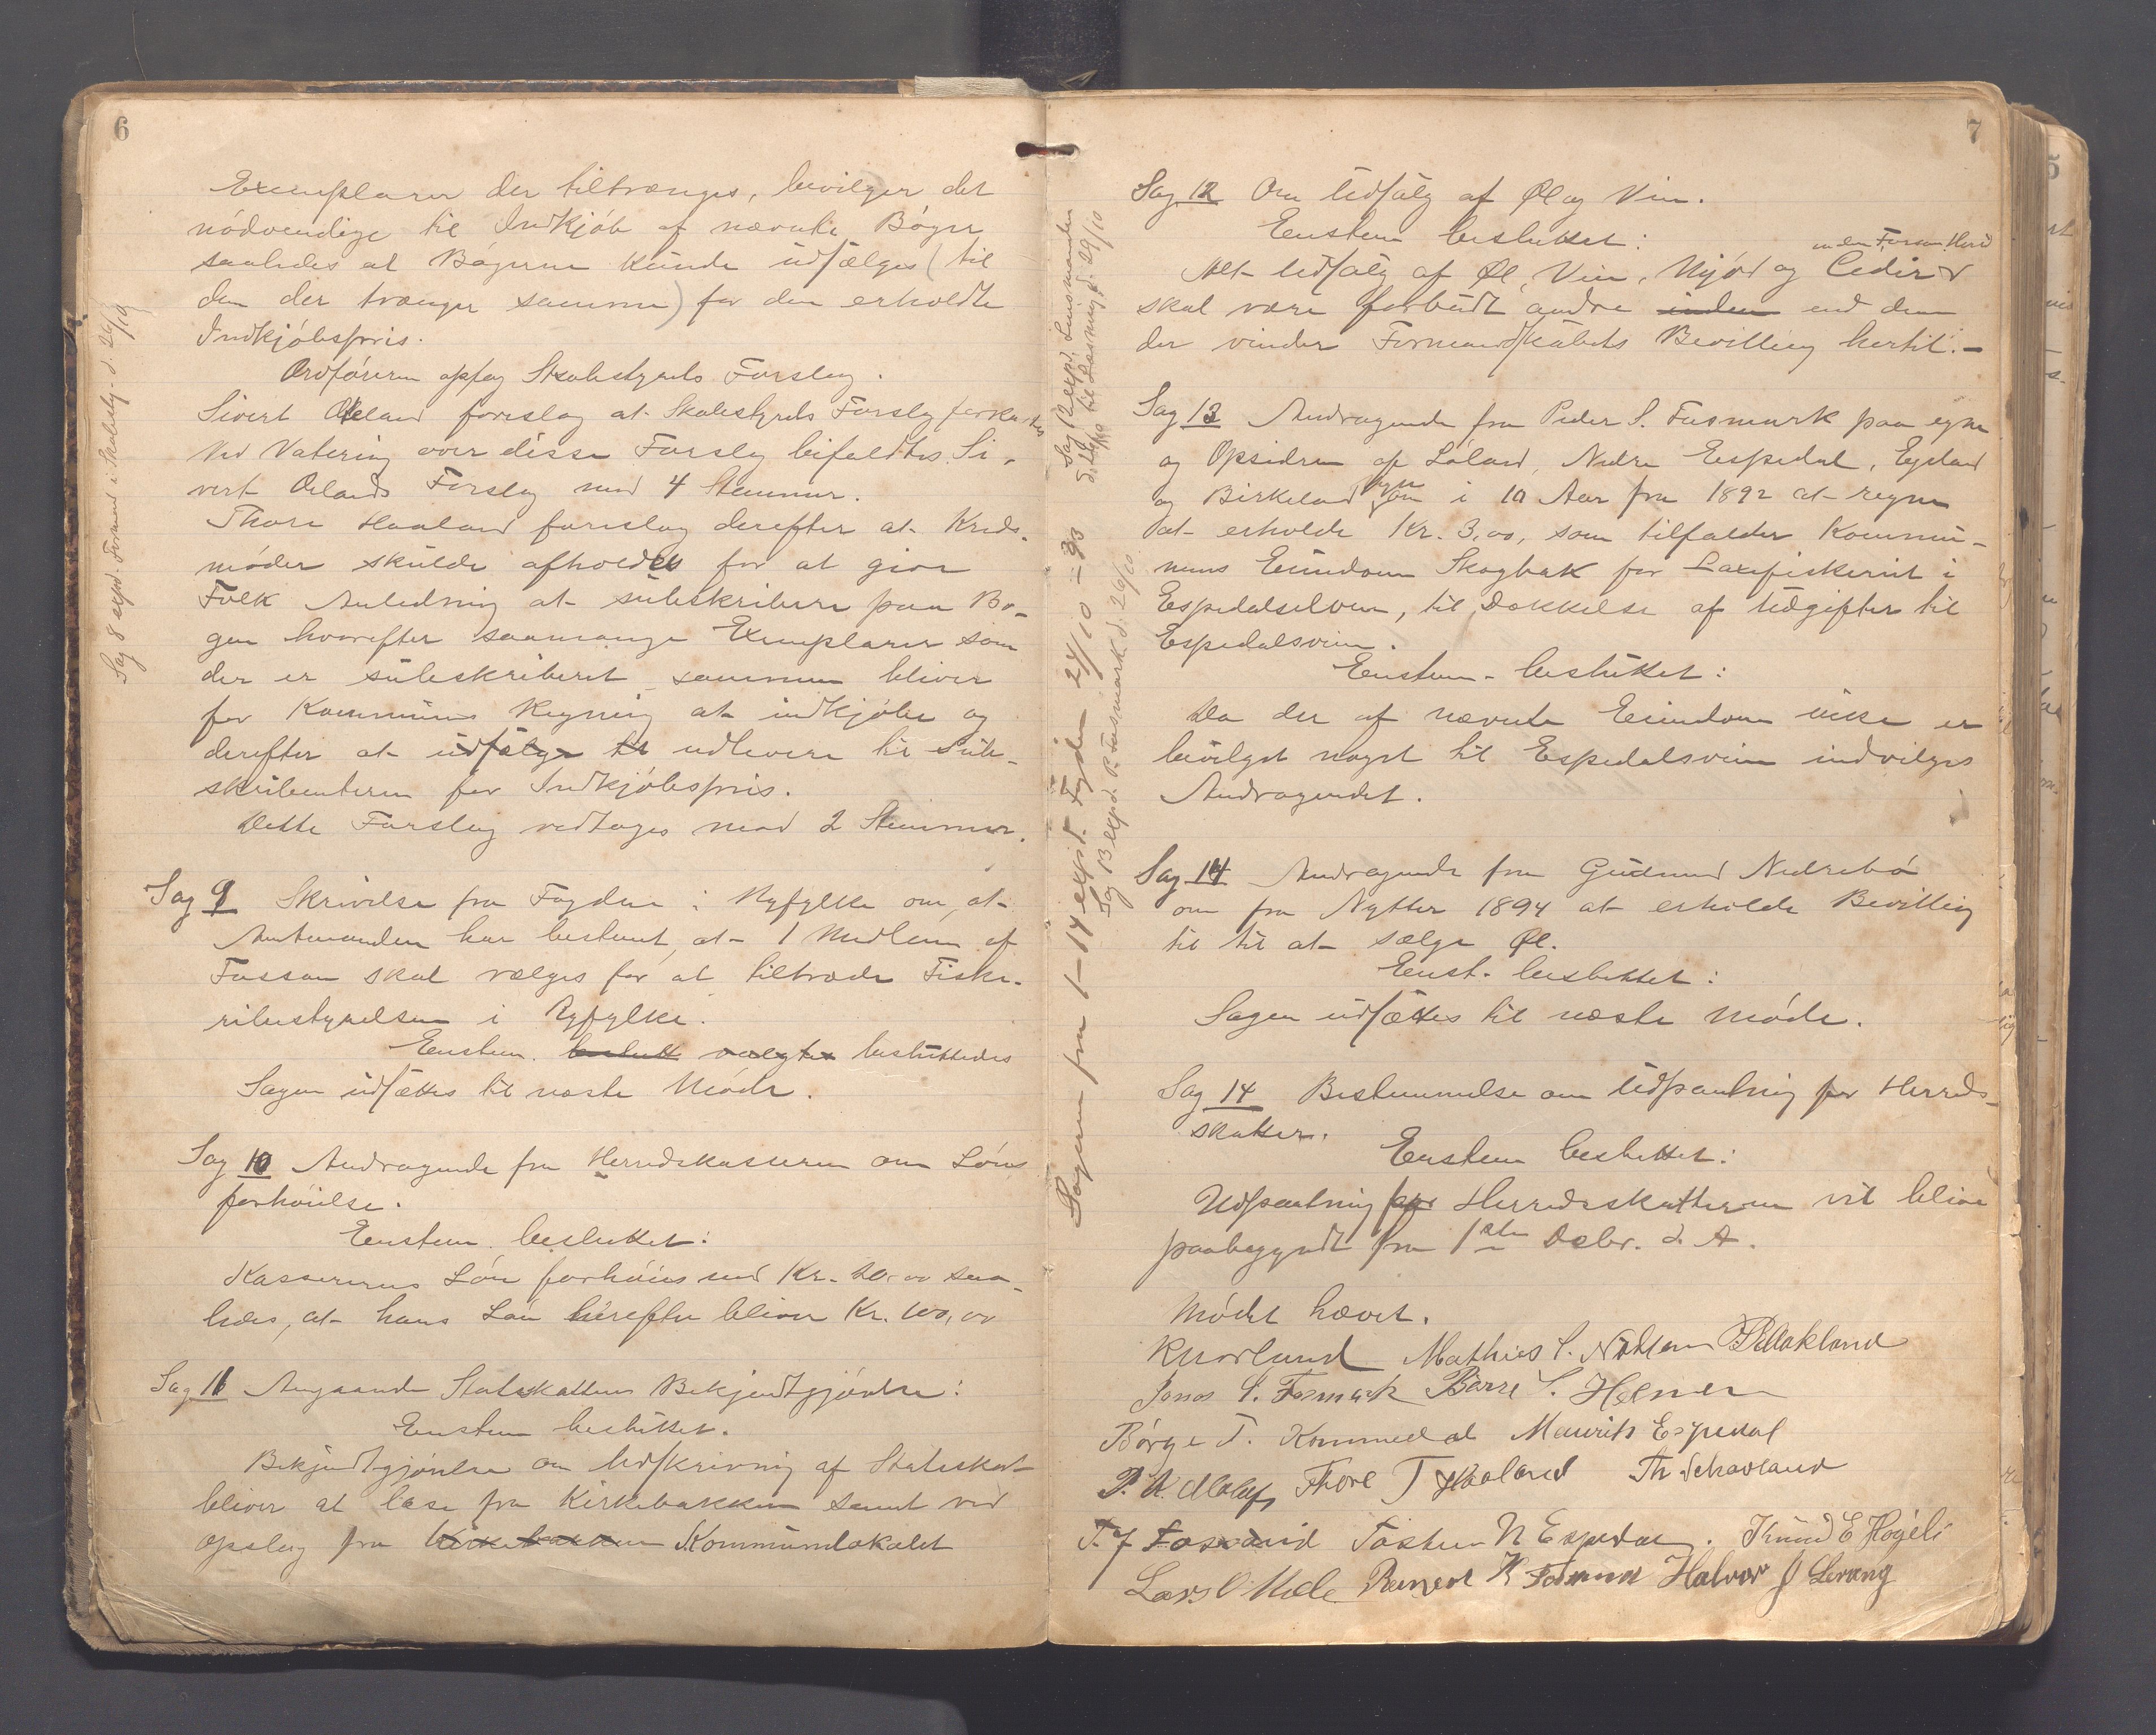 6
Exemplarer der tiltrænges, bevilger det
nödvendige til Indkjöb af nævnte Böger
saaledes at Bögerne kunde udsælges (til
den der trænger samme) for den erholdte
Indkjöbspris.
Ordföreren optog Skolestyrets Forslag.
Sivert Oeland foreslog at Skolestyrets Forslag forkastes
Ved Votering over disse Forslag bifaldtes Si-
vert Oelands Forslag mod 4 Stemmer.
Thore Haaland foreslog derefter at Kreds-
møder skulde afholdes for at give
Folk Anledning at subskribere paa Bo-
gen hvorefter saamange Exemplarer som
der er subskriberet sammen bliver
for Kommunens Regning at indkjöbe og
derefter at udsælge til udlevere til Sub-
skribenterne for Indkjöbspris.
Dette Forslag vedtoges mod 2 Stemmer.
Sag 9 Skrivelse fra Fogden i Ryfylke om, at
Amtmanden har bestemt, at 1 Medlem af
Fossan skal vælges for at tiltræde Fiske-
ribestyrelsen i Ryfylke.
Enstem. beslutt valgtes besluttedes
Sagen udsættes til næste Möde.
Sag 10 Andragende fra Herredskasseren om Löns
forhöielse.
Enstem. besluttet:
Kassererens Lön forhöies med Kr. 20,00 saa-
ledes, at hans Lön herefter bliver Kr. 100,00
Sag 11 Angaaende Statsskattens Bekjendtgjörelse:
Enstem besluttet.
Bekjendtgjörelse om Udskrivning af Statsskat
bliver at læse fra Kirkebakken samt ved
Opslag fra Kirkebakken Kommunelokalet
Sag 8 expd. Formand i Skolesty. d. 26/10
7
Sag 12 Om Udsalg af Øl og Vin.
Enstem besluttet:
inden Fossan Herred
Alt Udsalg af Øl, Vin, Mjöd og Ceder
skal være forbudt andre inden end dem
der vinder Formandskabets Bevilling hertil.-
Sag 13 Andragende fra Peder S. Fosmark paa egne
og Opsidderne af Löland, Nedre Espedal, Eyeland
og Birkeland Vegne om i 10 Aar fra 1892 at regne
at erholde Kr. 3,00, som tilfalder Kommu-
nens Eiendom Skogbak for Laxefiskeriet i
Espedalselven, til Dækkelse af Udgifter til
Espedalsveien.
Enstem. besluttet:
Da der af nævnte Eiendom ikke er
bevilget noget til Espedalsveien indvilges
Andragendet.
Sag 14 Andragende fra Gudmund Nedrebö
om fra Nytter 1894 at erholde Bevilling
til til at sælge Øl.
Enst. besluttet:
Sagen udsættes til næste Möde.
Sag 14 Bestemmelse om Udpantning for Herreds-
skatter.
Enstem besluttet:
Udpantning for Herredsskatterne vil blive
paabegyndt fra 1ste Decbr. d. A.
Mödet hævet.
Mathias S. Nilsen
Jonas S. Fosmark Börre S. Helmen
Börge T. Kommedal Maurits Espedal
Thore T Haaland
T. J Fossand Tosten N Espedal. Knud E Högeli
Lars O Mæle K Fosmark Halvor J Levang
Sagerne fra 1-14 expd. Fogden 24/10 - 93
Sag 12 expd. Lensmanden
d. 26/10 til Læsning d. 29/10
Sag 13 expd. P. Fosmark d. 26/10